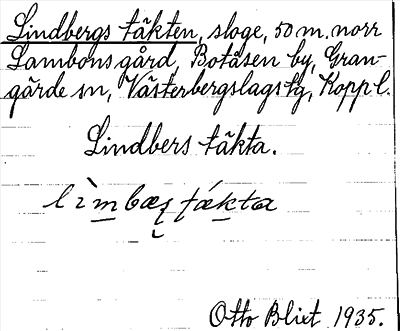 Lindbergs täkten, sloge, 50 m. norr
Lambons gård, Botåsen by, Gran-
gärde sn, Västerbergslags tg, Koppl.
Lindbers täkta.
Otto Blixt 1935.